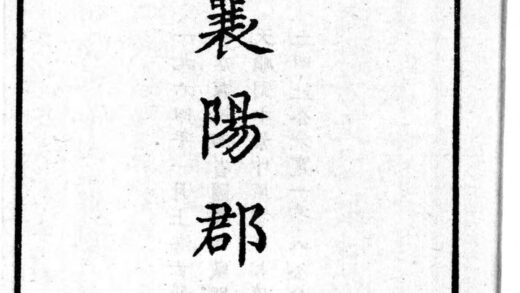 襄陽郡